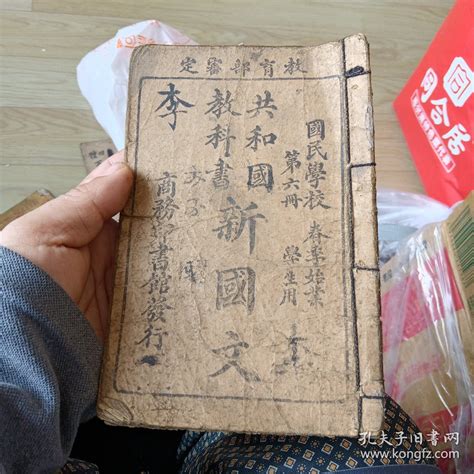 教育部審定
國民學校 春季始業
第六冊 學生用
共和國
教科書
新國文
李
商務印書館發行
孔夫子旧书网
www.kongfz.com